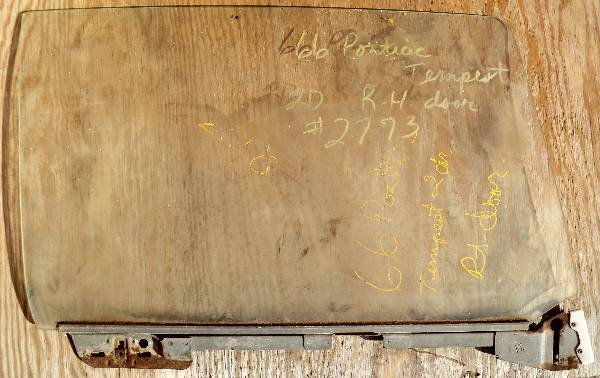 666 Pontiac
Tempest
2D R.H. door
#2793
66 Pont.
Tempest 2 dr.
Rt. door